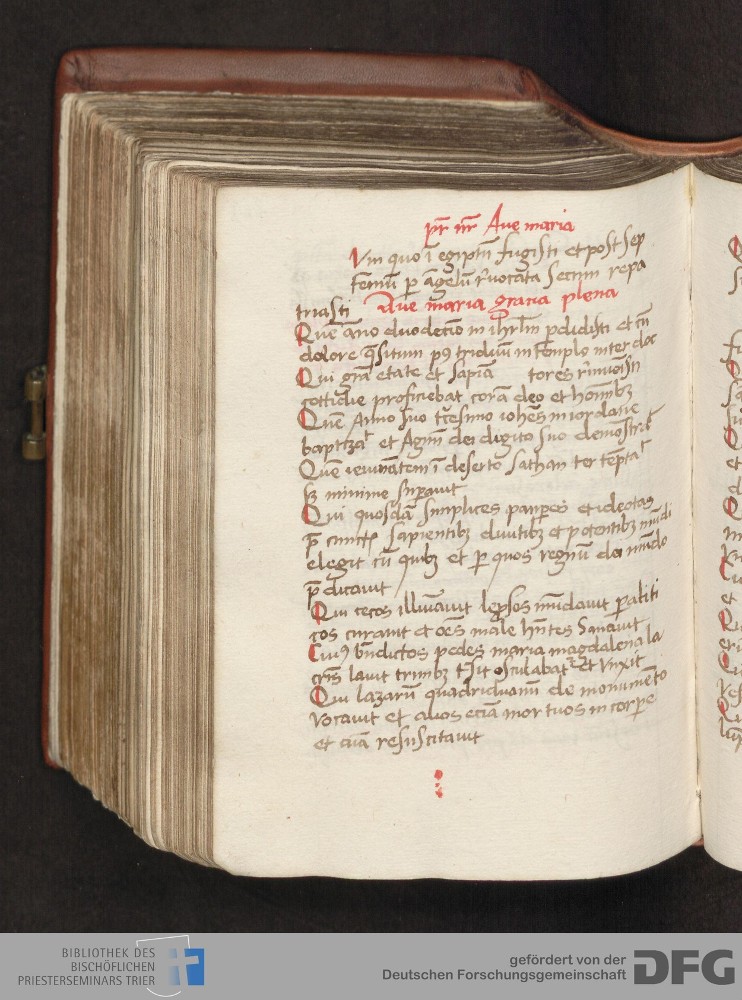 pr̄ nr̄ Aue maria
Vm quo ī egiptū fugisti et post sep
tennū ꝑ āgelū r̄uocata secum repa
triasti Aue maria gracia plena
Quē āno duodecīo in ihrl̄m ꝑdidisti et cū
dolore q̄situm pꝰ triduūm in templo inter doc
Qui grā etate et sapiā tores r̄inuēisti
cottidie proficiebat corā deo et hoībꝫ
Quē Anno suo t̄cesimo iohēs in iordane
baptizat et Agnū dei digito suo demōstrat
Quē ieiunātem ī deserto sathan ter tēptat
sꝫ minime suꝑauit
Qui quosdā simplices pauperes et ideotas
p̄ cunctꝭ sapientibꝫ diuitibꝫ et potentibꝫ mūdi
elegit cū quibꝫ et ꝑ quos regnū dei mūdo
p̄dicauit
Qui cecos illuīauit lep̄sos mūdauit paraliti
cos curauit et oēs male hn̄tes sanauit
Cuiꝰ bn̄dictos pedes maria magdalena la
cr̄is lauit crinibꝫ t̄sit osculabat et vnxit
Qui lazarū quadriduanū de monumēto
vocauit et alios eciā mortuos in corpe
et aīa resuscitauit
BIBLIOTHEK DES
BISCHÖFLICHEN
PRIESTERSEMINARS TRIER
gefördert von der
Deutschen Forschungsgemeinschaft DFG